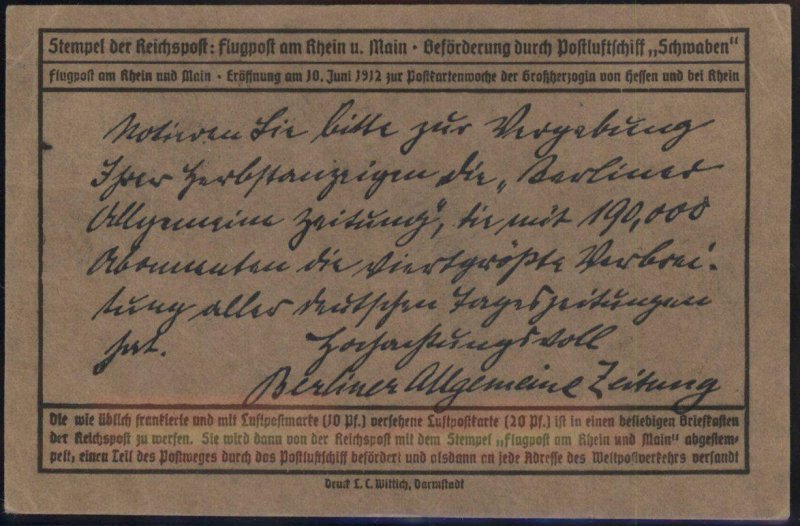 Stempel der Reichspost: Flugpost am Rhein u. Main · Beförderung durch Postluftschiff „Schwaben"
Flugpost am Rhein und Main · Eröffnung am 10. Juni 1912 zur Postkartenwoche der Großherzogin von Hessen und bei Rhein
Notieren Sie bitte zur Vergebung
Ihrer Herbstanzeigen die „Berliner
Allgemeine Zeitung", die mit 190,000
Abonnenten die viertgrößte Verbrei-
tung aller deutschen Tageszeitungen
hat. Hochachtungsvoll
Berliner Allgemeine Zeitung
Die wie üblich frankierte und mit Luftpostmarke (10 Pf.) versehene Luftpostkarte (20 Pf.) ist in einen beliebigen Briefkasten
der Reichspost zu werfen. Sie wird dann von der Reichspost mit dem Stempel „Flugpost am Rhein und Main" abgestem-
pelt, einen Teil des Postweges durch das Postluftschiff befördert und alsdann an jede Adresse des Weltpostverkehrs versandt
Druck L. C. Wittich, Darmstadt